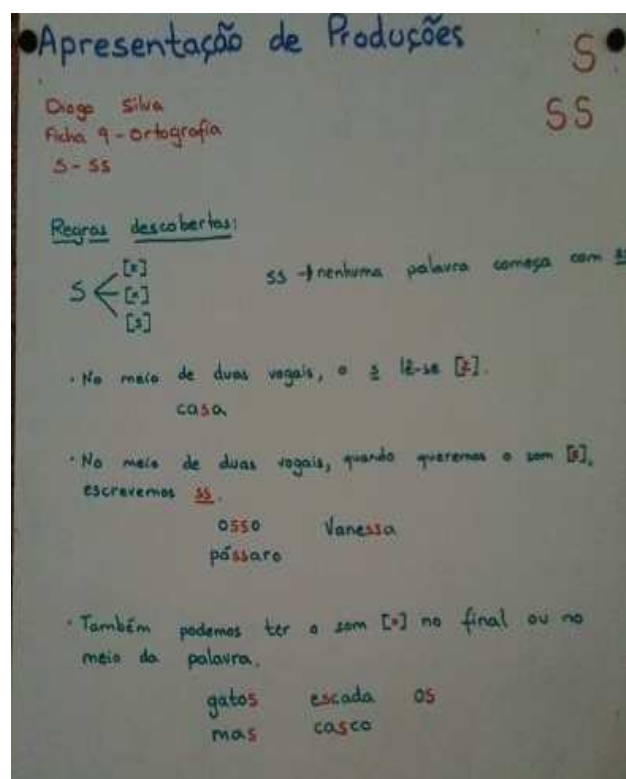 Apresentação de Produções
S
SS
Diogo Silva
Ficha 9 - Ortografia
S - SS
Regras descobertas:
S
ss → nenhuma palavra começa com ss
• No meio de duas vogais, o s lê-se [z].
casa
• No meio de duas vogais, quando queremos o som [s],
escrevemos ss.
osso Vanessa
pássaro
• Também podemos ter o som [x] no final ou no
meio da palavra.
gatos escada os
mas casco